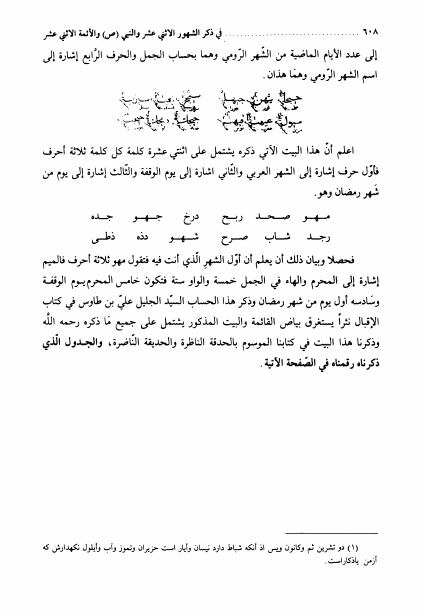 ٦٠٨ ........ في ذكر الشهور الاثني عشر والنبي (ص) والأئمة الاثني عشر
إلى عدد الأيام الماضية من الشّهر الرّومي وهما بحساب الجمل والحرف الرَّابع إشارة إلى
اسم الشهر الرّومي وهمَا هذان.
اعلم أنّ هذا البيت الآتي ذكره يشتمل على اثنتي عشرة كلمة كل كلمة ثلاثة أحرف
فأوّل حرف إشارة إلى الشهر العربي والثّاني اشارة إلى يوم الوقفة والثّالث إشارة إلى يوم من
شَهر رمضان وهو.
مـهـو صـحـد ربـح درخ جـهـو جـده
رجـد شـاب صـرح شـهـو دذه ذطـى
فحصلا وبيان ذلك أن يعلم أن أوّل الشهرِ الّذي أنت فيه فتقول مهو ثلاثة أحرف فالميم
إشارة إلى المحرم والهاء في الجمل خمسة والواو ستة فتكون خامس المحرم يوم الوقفة
وسَادسه أول يوم من شهر رمضان وذكر هذا الحساب السيّد الجليل عليّ بن طاوس في كتاب
الإقبال نثراً يستغرق بياض القائمة والبيت المذكور يشتمل على جميع مَا ذكره رحمه اللَّه
وذكرنا هذا البيت في كتابنا الموسوم بالحدقة الناظرة والحديقة النّاضرة، والجدول الّذي
ذكرناه رقمناه في الصّفحة الآتية.
(١) دو تشرين ثم وكانون وبس اذ آنكه شباط دارد نيسان وأيار است حزيران وتموز وآب وأيلول نكهدارش كه
أزمن ياذكاراست.